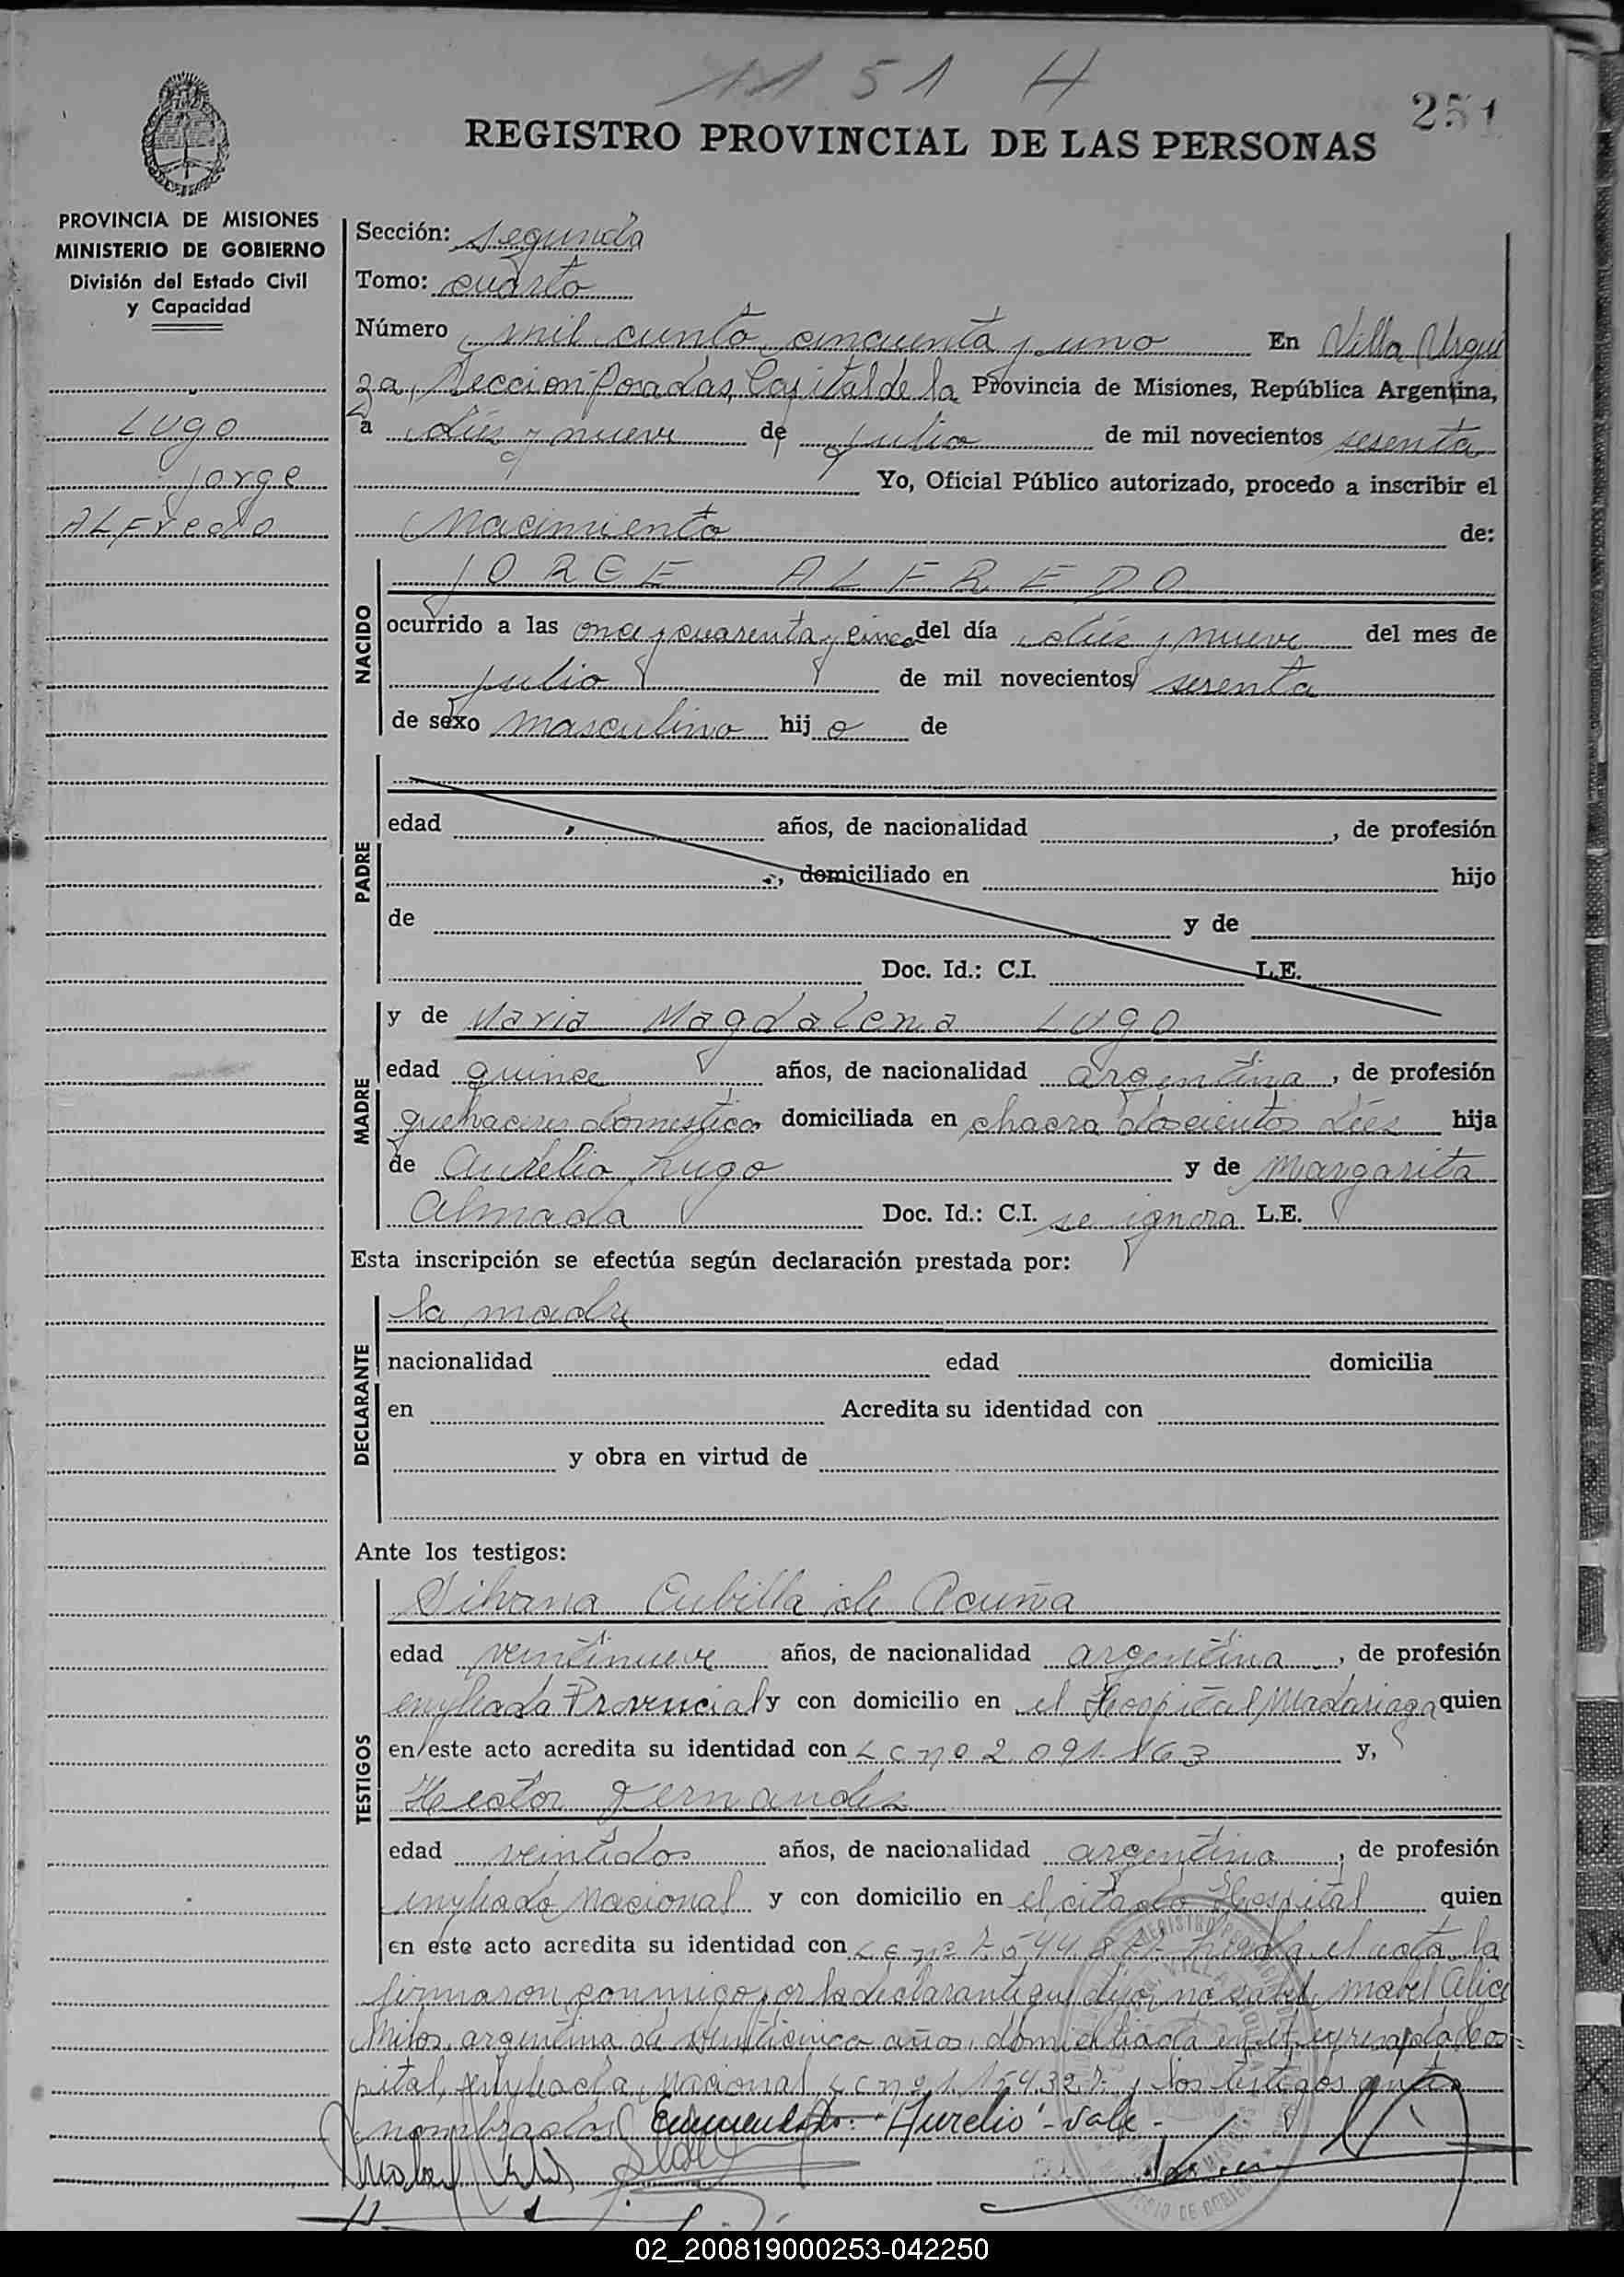 11 51 H
251
REGISTRO PROVINCIAL DE LAS PERSONAS
PROVINCIA DE MISIONES
MINISTERIO DE GOBIERNO
División del Estado Civil
y Capacidad
Lugo
Jorge
ALFredo
Sección: segunda
Tomo: cuarto
Número mil ciento cincuenta y uno En Villa Urqui
za, Seccion Posadas, Capital de la Provincia de Misiones, República Argentina,
a diés y nueve de julio de mil novecientos sesenta
Yo, Oficial Público autorizado, procedo a inscribir el
Nacimiento de:
NACIDO
JORGE ALFREDO
ocurrido a las once y cuarenta y cinco del día diés y nueve del mes de
julio de mil novecientos sesenta
de sexo masculino hij o de
PADRE
edad años, de nacionalidad , de profesión
, domiciliado en hijo
de y de
Doc. Id.: C.I. L.E.
MADRE
y de Maria Magdalena Lugo
edad quince años, de nacionalidad argentina, de profesión
quehaceres domesticos domiciliada en chacra doscientos diés hija
de Aurelio Lugo y de Margarita
Almada Doc. Id.: C.I. se ignora L.E.
Esta inscripción se efectúa según declaración prestada por:
DECLARANTE
la madre
nacionalidad edad domicilia
en Acredita su identidad con
y obra en virtud de
Ante los testigos:
TESTIGOS
Silvana Cubilla de Acuña
edad veintinueve años, de nacionalidad argentina, de profesión
empleada Provincial y con domicilio en el Hospital Madariaga quien
en este acto acredita su identidad con L C nº 2.091.163 y,
Hector Fernandez
edad veintidos años, de nacionalidad argentina, de profesión
empleado Nacional y con domicilio en el citado Hospital quien
en este acto acredita su identidad con nº el acta la
firmaron conmigo por la declarante que dijo no saber, Mabel Alice
Milos, argentina de veinticinco años, domiciliada en el expresado Hos=
pital, empleada Nacional, L C nº 1.154.327 y los testigos ante
nombrados. Enmendado: "Aurelio" - Vale -
02_200819000253-042250